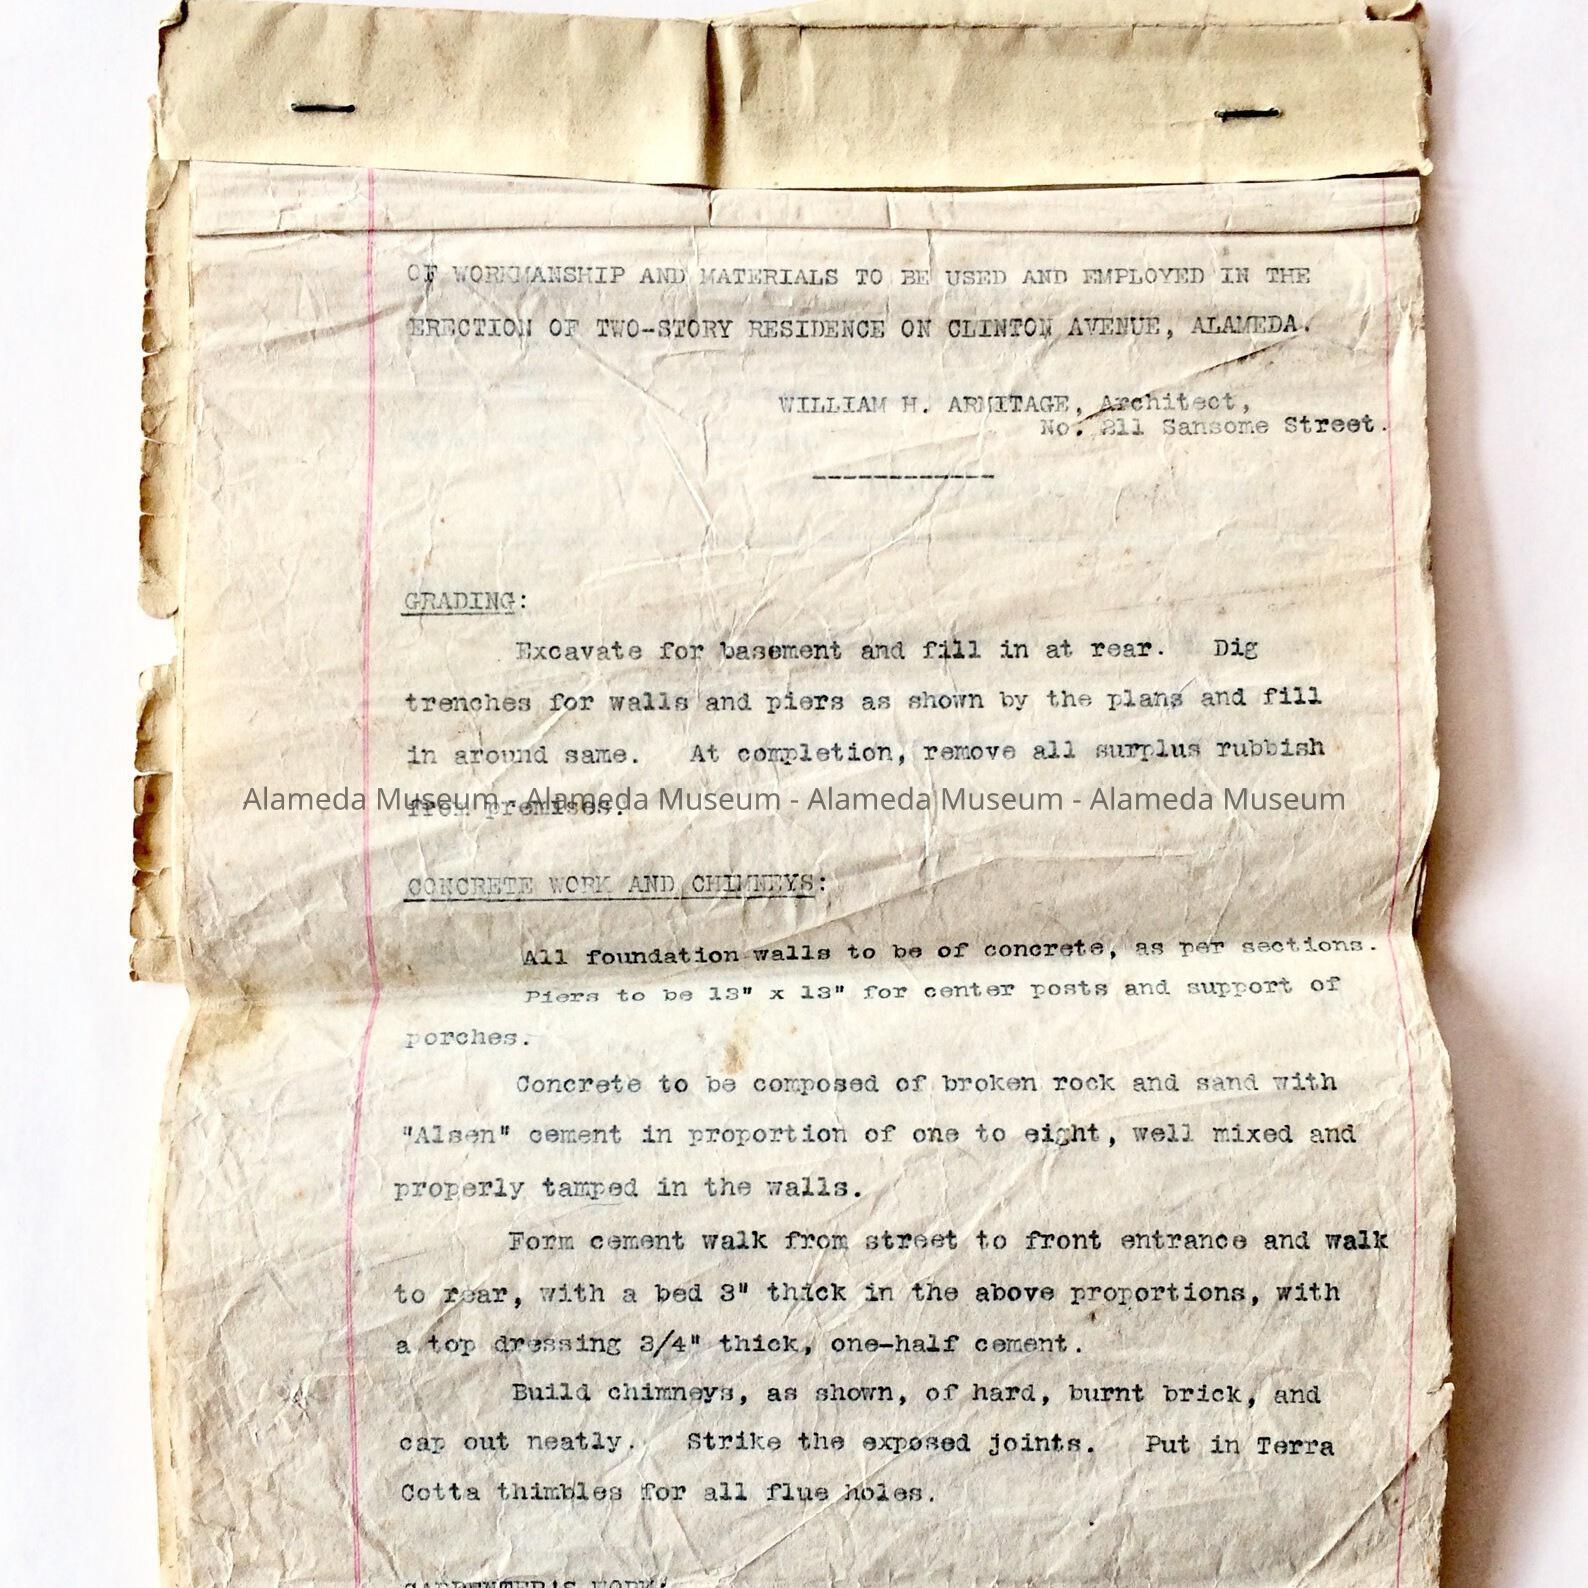 OF WORKMANSHIP AND MATERIALS TO BE USED AND EMPLOYED IN THE
ERECTION OF TWO-STORY RESIDENCE ON CLINTON AVENUE, ALAMEDA.
WILLIAM H. ARMITAGE, Architect,
No. 211 Sansome Street.
------------
GRADING:
Excavate for basement and fill in at rear. Dig
trenches for walls and piers as shown by the plans and fill
in around same. At completion, remove all surplus rubbish
from premises.
Alameda Museum - Alameda Museum - Alameda Museum - Alameda Museum
CONCRETE WORK AND CHIMNEYS:
All foundation walls to be of concrete, as per sections.
Piers to be 13" x 13" for center posts and support of
porches.
Concrete to be composed of broken rock and sand with
"Alsen" cement in proportion of one to eight, well mixed and
properly tamped in the walls.
Form cement walk from street to front entrance and walk
to rear, with a bed 3" thick in the above proportions, with
a top dressing 3/4" thick, one-half cement.
Build chimneys, as shown, of hard, burnt brick, and
cap out neatly. Strike the exposed joints. Put in Terra
Cotta thimbles for all flue holes.
CARPENTER'S WORK: